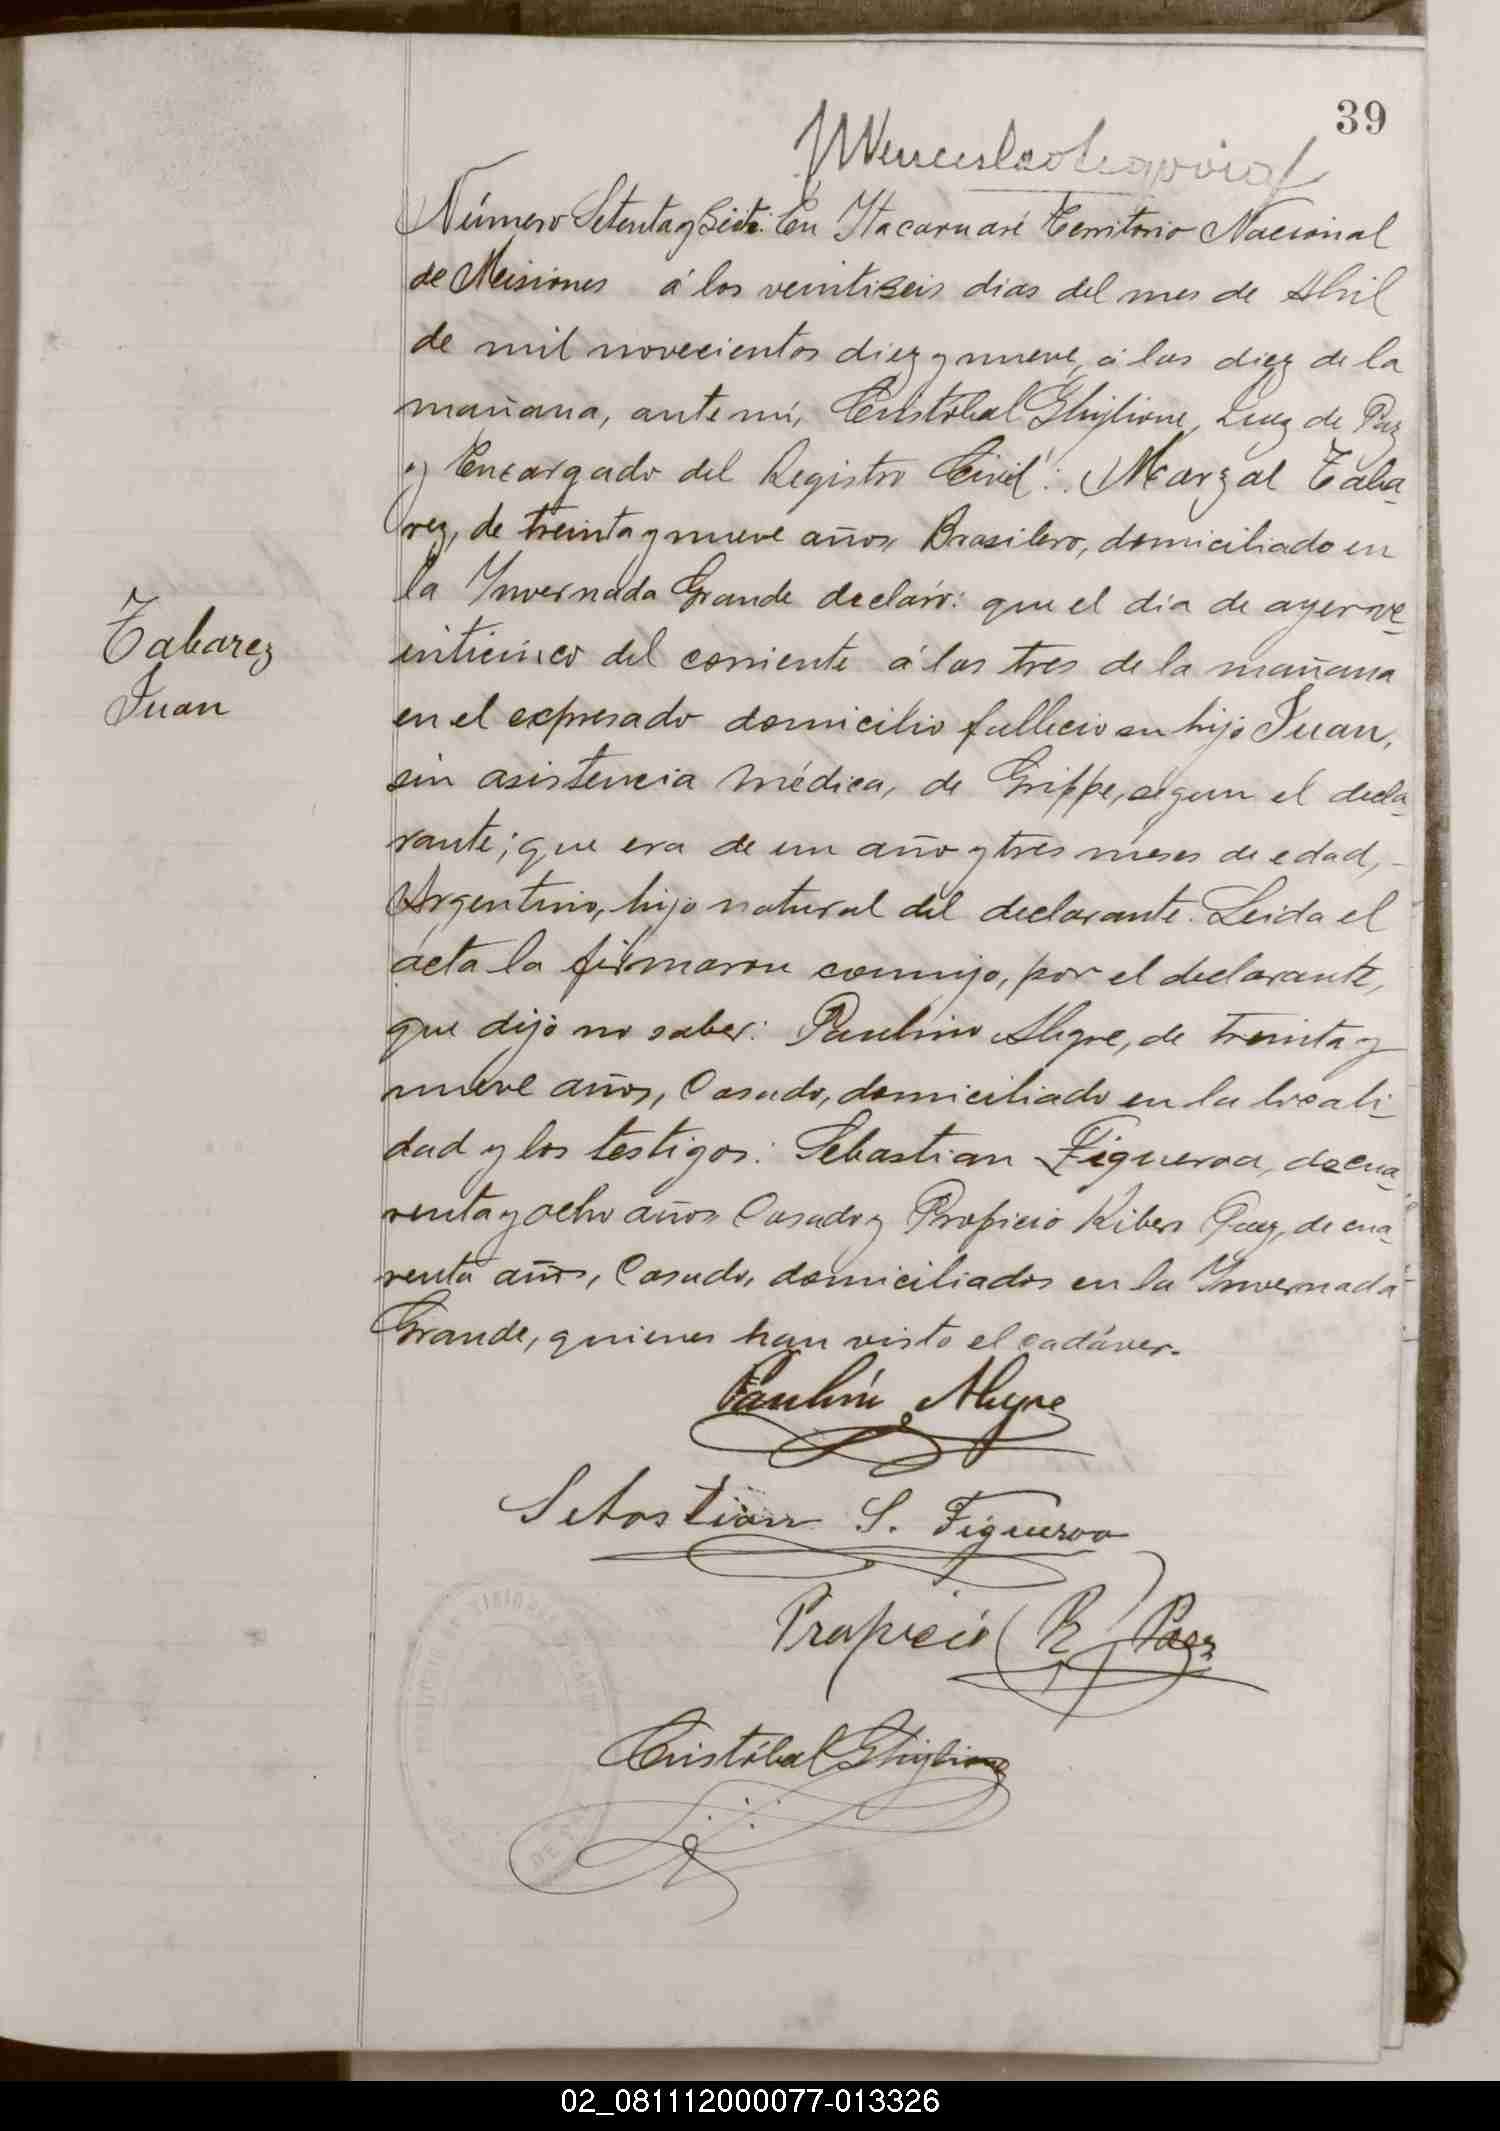 39
Número Setenta y Siete: En Itacaruaré Territorio Nacional
de Misiones á los veintiseis dias del mes de Abril
de mil novecientos diez y nueve, á las diez de la
mañana, ante mí, Cristóbal Ghiglione, Juez de Paz
y Encargado del Registro Civil: Marzal Taba-
rez, de treinta y nueve años, Brasilero, domiciliado en
la Invernada Grande declaró: que el dia de ayer ve-
inticinco del corriente á las tres de la mañana
Tabarez
Juan
en el expresado domicilio fallecio su hijo Juan,
sin asistencia médica, de Grippe, segun el decla-
rante; que era de un año y tres meses de edad,-
Argentino, hijo natural del declarante. Leida el
acta la firmaron conmigo, por el declarante,
que dijo no saber: Paulino Alegre, de treinta y
nueve años, Casado, domiciliado en la locali-
dad y los testigos: Sebastian Figueroa, de cua-
renta y ocho años Casado y Propicio Ribero Paez, de cua-
renta años, Casado, domiciliados en la Invernada
Grande, quienes han visto el cadáver.
Paulino Alegre
Sebastian S. Figueroa
Propicio R Paez
Cristóbal Ghiglione
02_081112000077-013326